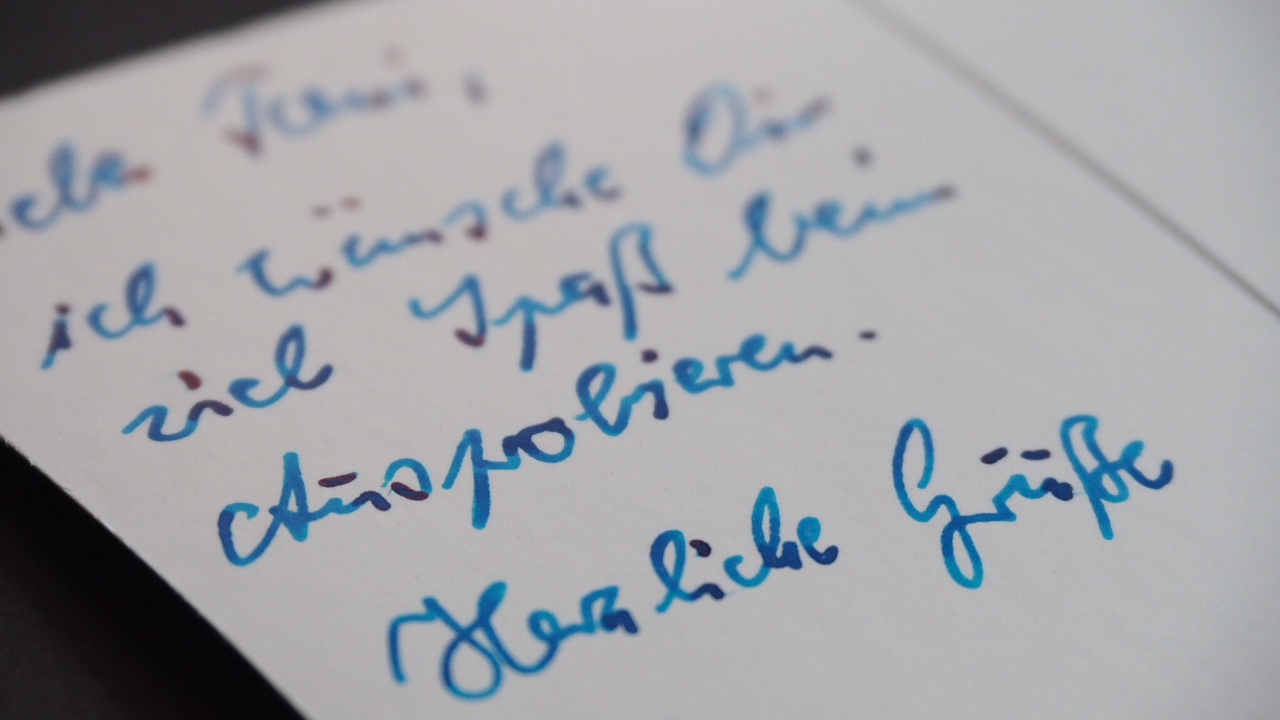 iebe
ich wünsche Dir
viel Spaß beim
Ausprobieren.
Herzliche Grüße